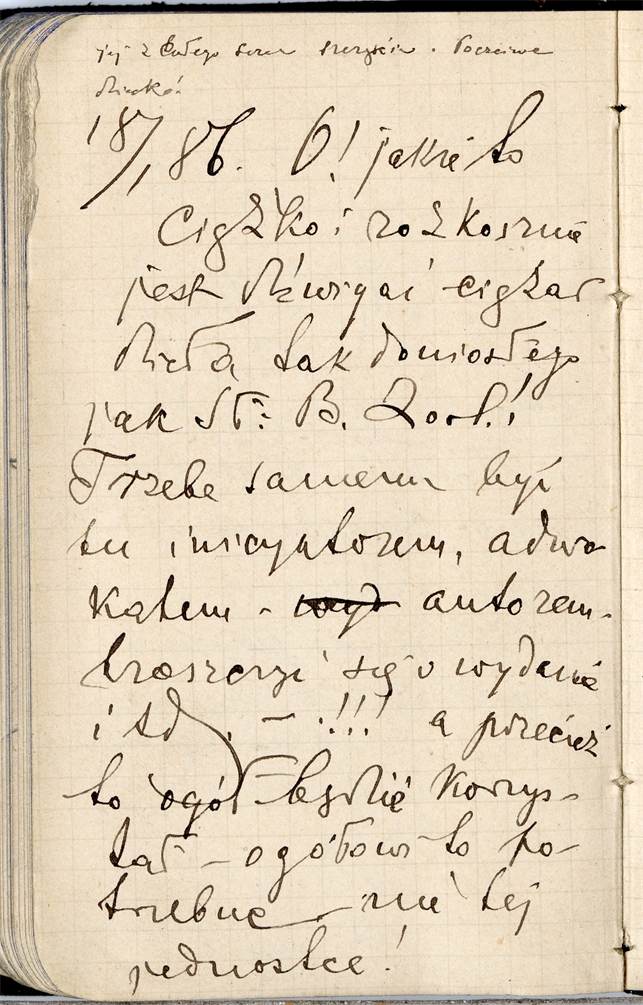 jej z całego serca szczęścia. Poczciwe
dziecko!
18/1 86. O! jakże to
ciężko i rozkosznie
jest dźwigać ciężar
dzieła tak doniosłego
jak St: B. Zool.!
Trzeba samemu być
tu inicyatorem, adwo-
katem - autorem -
troszczyć się o wydanie
i td. - !!! a przecież
to ogół będzie korzys-
tał - ogółowi to po-
trzebne - nie tej
jednostce!